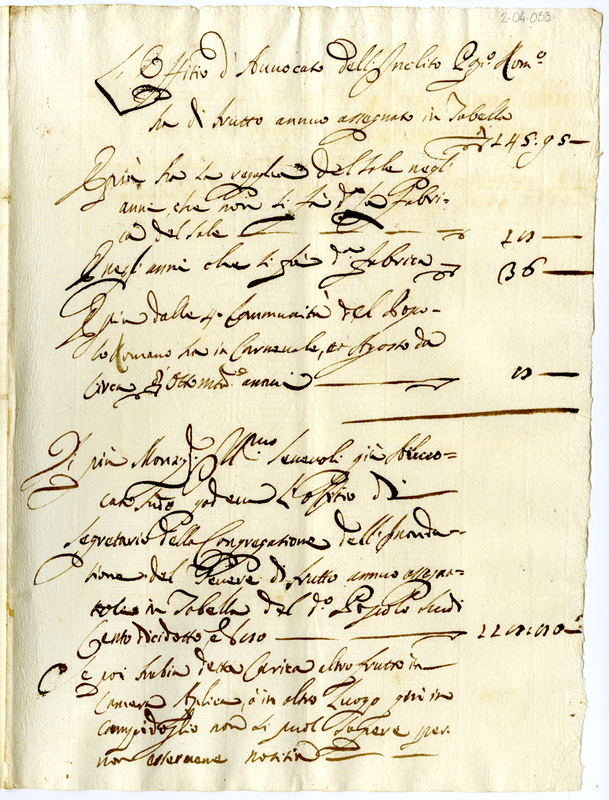 2-04-053
L'Offitio d'Auuocato dell'Inclito Ppo. Romo.
ha di frutto annuo assegnato in Tabella
145:95
E più ha la regaglia del sale negl'
anni, che non si fa da. la fabri-
ca del sale
E negl'anni che si fà da. fabrica 36
E più dalle 4. Communità del Popo-
lo Romano ha in Carneuale, et Agosto da
circa otto annui
Di più Monsr. Illmo. già Auuo-
cato godeua l'Offitio di
Segretario della Congregatione dell'Inonda-
tione del Teuere di frutto annuo assegna-
toli in Tabella del do. Popolo scudi
Cento diciotto e
Se poi habia detta Carica altro frutto in
Camera Aplica, ò in altro Luogo quì in
Campidoglio non si puol sapere per
non esseruene notitia